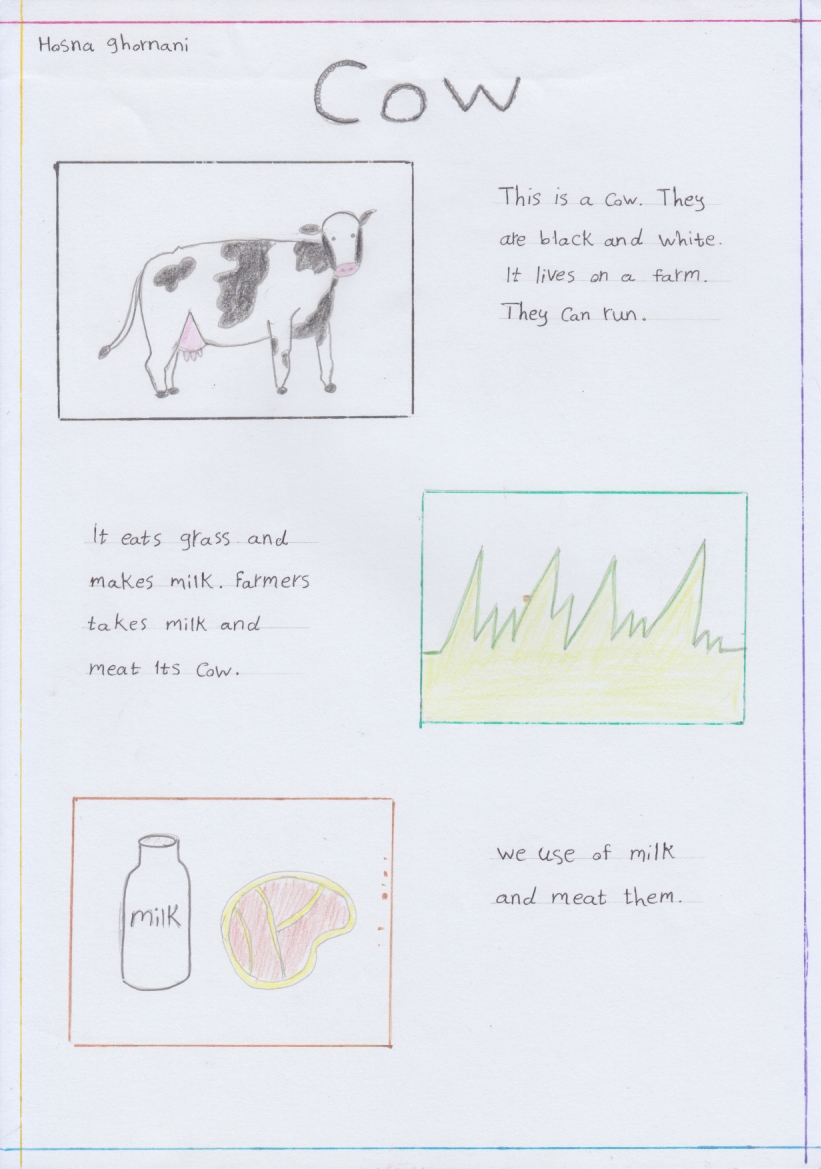 Hosna ghornani
Cow
This is a Cow. They
are black and white.
It lives on a farm.
They Can run.
It eats grass and
makes milk. Farmers
takes milk and
meat Its Cow.
milk
we use of milk
and meat them.